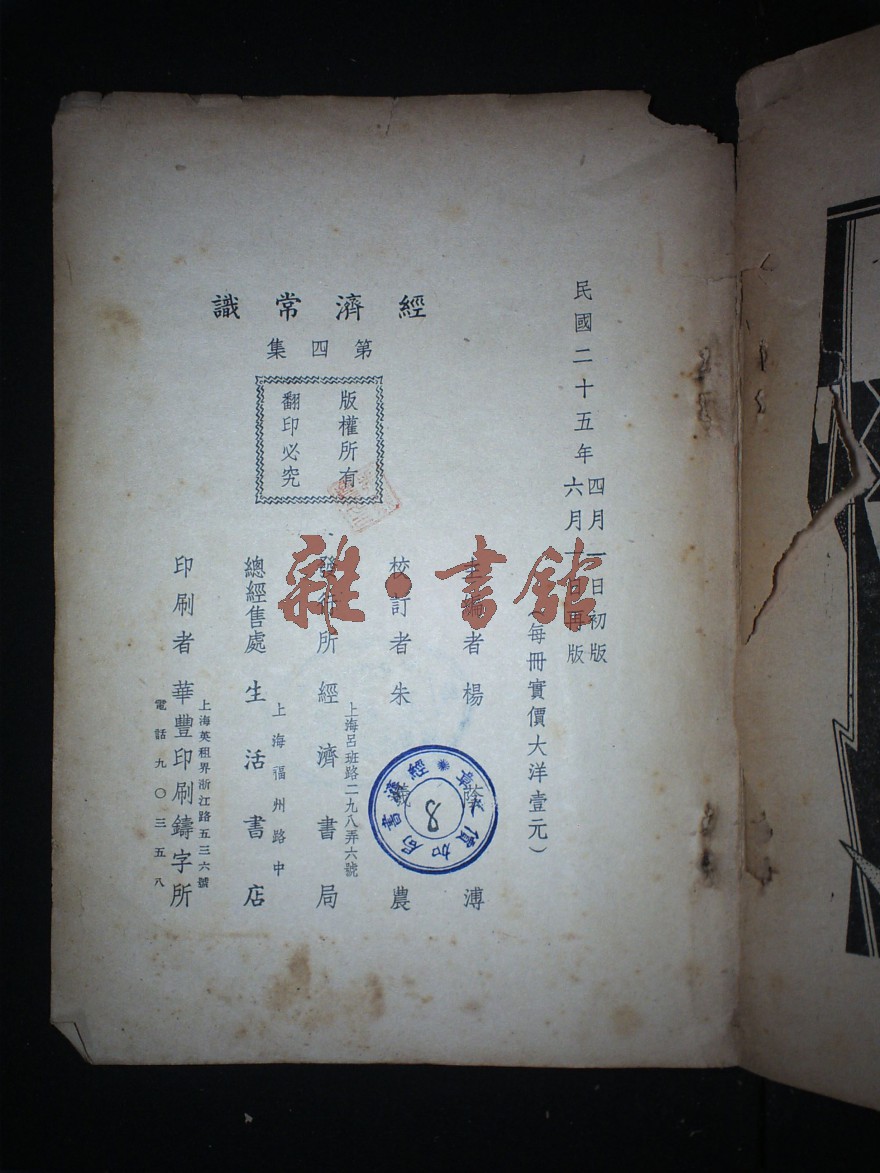 經濟常識
第四集
版權所有
翻印必究
民國二十五年
四月一日初版
六月一日再版
(每冊實價大洋壹元)
主編者 楊蔭溥
校訂者 朱 農
發行所 經濟書局
上海呂班路二九八弄六號
總經售處 生活書店
上海福州路中
印刷者 華豐印刷鑄字所
上海英租界浙江路五三六號
電話九〇三五八
經濟書局加價章
8
雜·書館